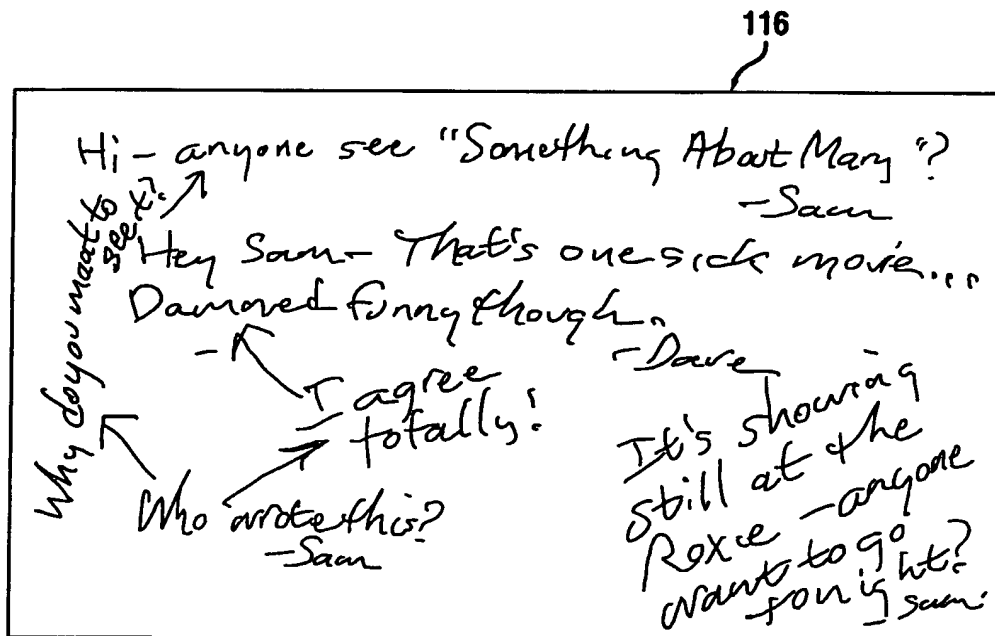 116
Hi - anyone see "Something About Mary"?
-Sam
Why do you want to
see it?
Hey Sam- That's one sick movie...
Damned funny though.
-Dave
I agree
totally!
Who wrote this?
-Sam
It's showing
still at the
Roxie -anyone
want to go
tonight?
-Sam.